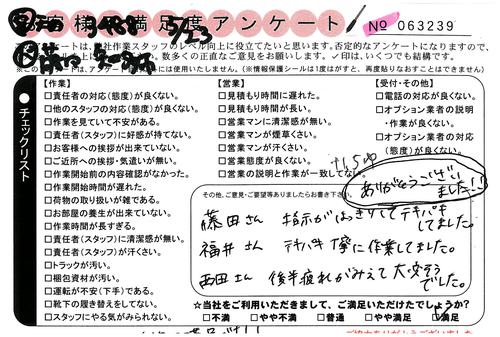 お客様満足度アンケート
5/23
No 063239
ートは、弊社作業スタッフのレベル向上に役立てたいと思います。否定的なアンケートになりますので、
数多くの正直なご意見をお願いします。✓印は、いくつでも結構です。
には使用いたしません。(※情報保護シールは1度はがすと、再度貼りなおすことはできません)
チェックリスト
【作業】
□責任者の対応(態度)が良くない。
□他のスタッフの対応(態度)が良くない。
□作業を見ていて不安がある。
□責任者(スタッフ)に好感が持てない。
□お客様への挨拶が出来ていない。
□ご近所への挨拶・気遣いが無い。
□作業開始前の内容確認がなかった。
□作業開始時間が遅れた。
□荷物の取り扱いが雑である。
□お部屋の養生が出来ていない。
□作業時間が長すぎる。
□責任者(スタッフ)に清潔感が無い。
□責任者(スタッフ)が汗くさい。
□トラックが汚い。
□梱包資材が汚い。
□運転が不安(下手)である。
□靴下の履き替えをしてない。
□スタッフにやる気がみられない。
【営業】
□見積もり時間に遅れた。
□見積もり時間が長い。
□営業マンに清潔感が無い。
□営業マンが煙草くさい。
□営業マンが汗くさい。
□営業態度が良くない。
□営業の説明と作業が一致してない。
【受付・その他】
□電話の対応が良くない。
□オプション業者の説明
・作業が良くない。
□オプション業者の対応
(態度)が良くない。
ありがとうござい
ました!!
その他、ご意見・ご要望等ありましたらお書き下さい。
藤田さん 指示がはっきりしてテキパキ
してました。
福井さん テキパキ丁寧に作業してました。
西田さん 後半疲れがみえて大変そう
でした。
☆当社をご利用いただきまして、ご満足いただけたでしょうか?
□不満 □やや不満 □普通 □やや満足 ☑満足